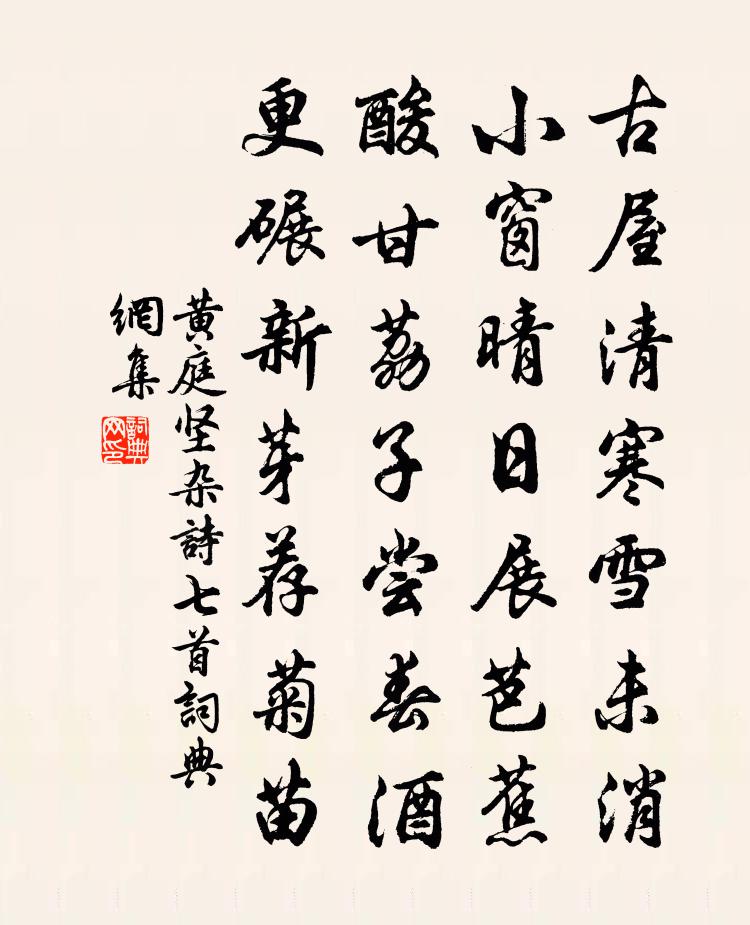 古屋清寒雪未消
小窗晴日展芭蕉
酸甘荔子尝春酒
更碾新芽荐菊苗
黄庭坚杂詩七首詞典
網集
詞典
网印